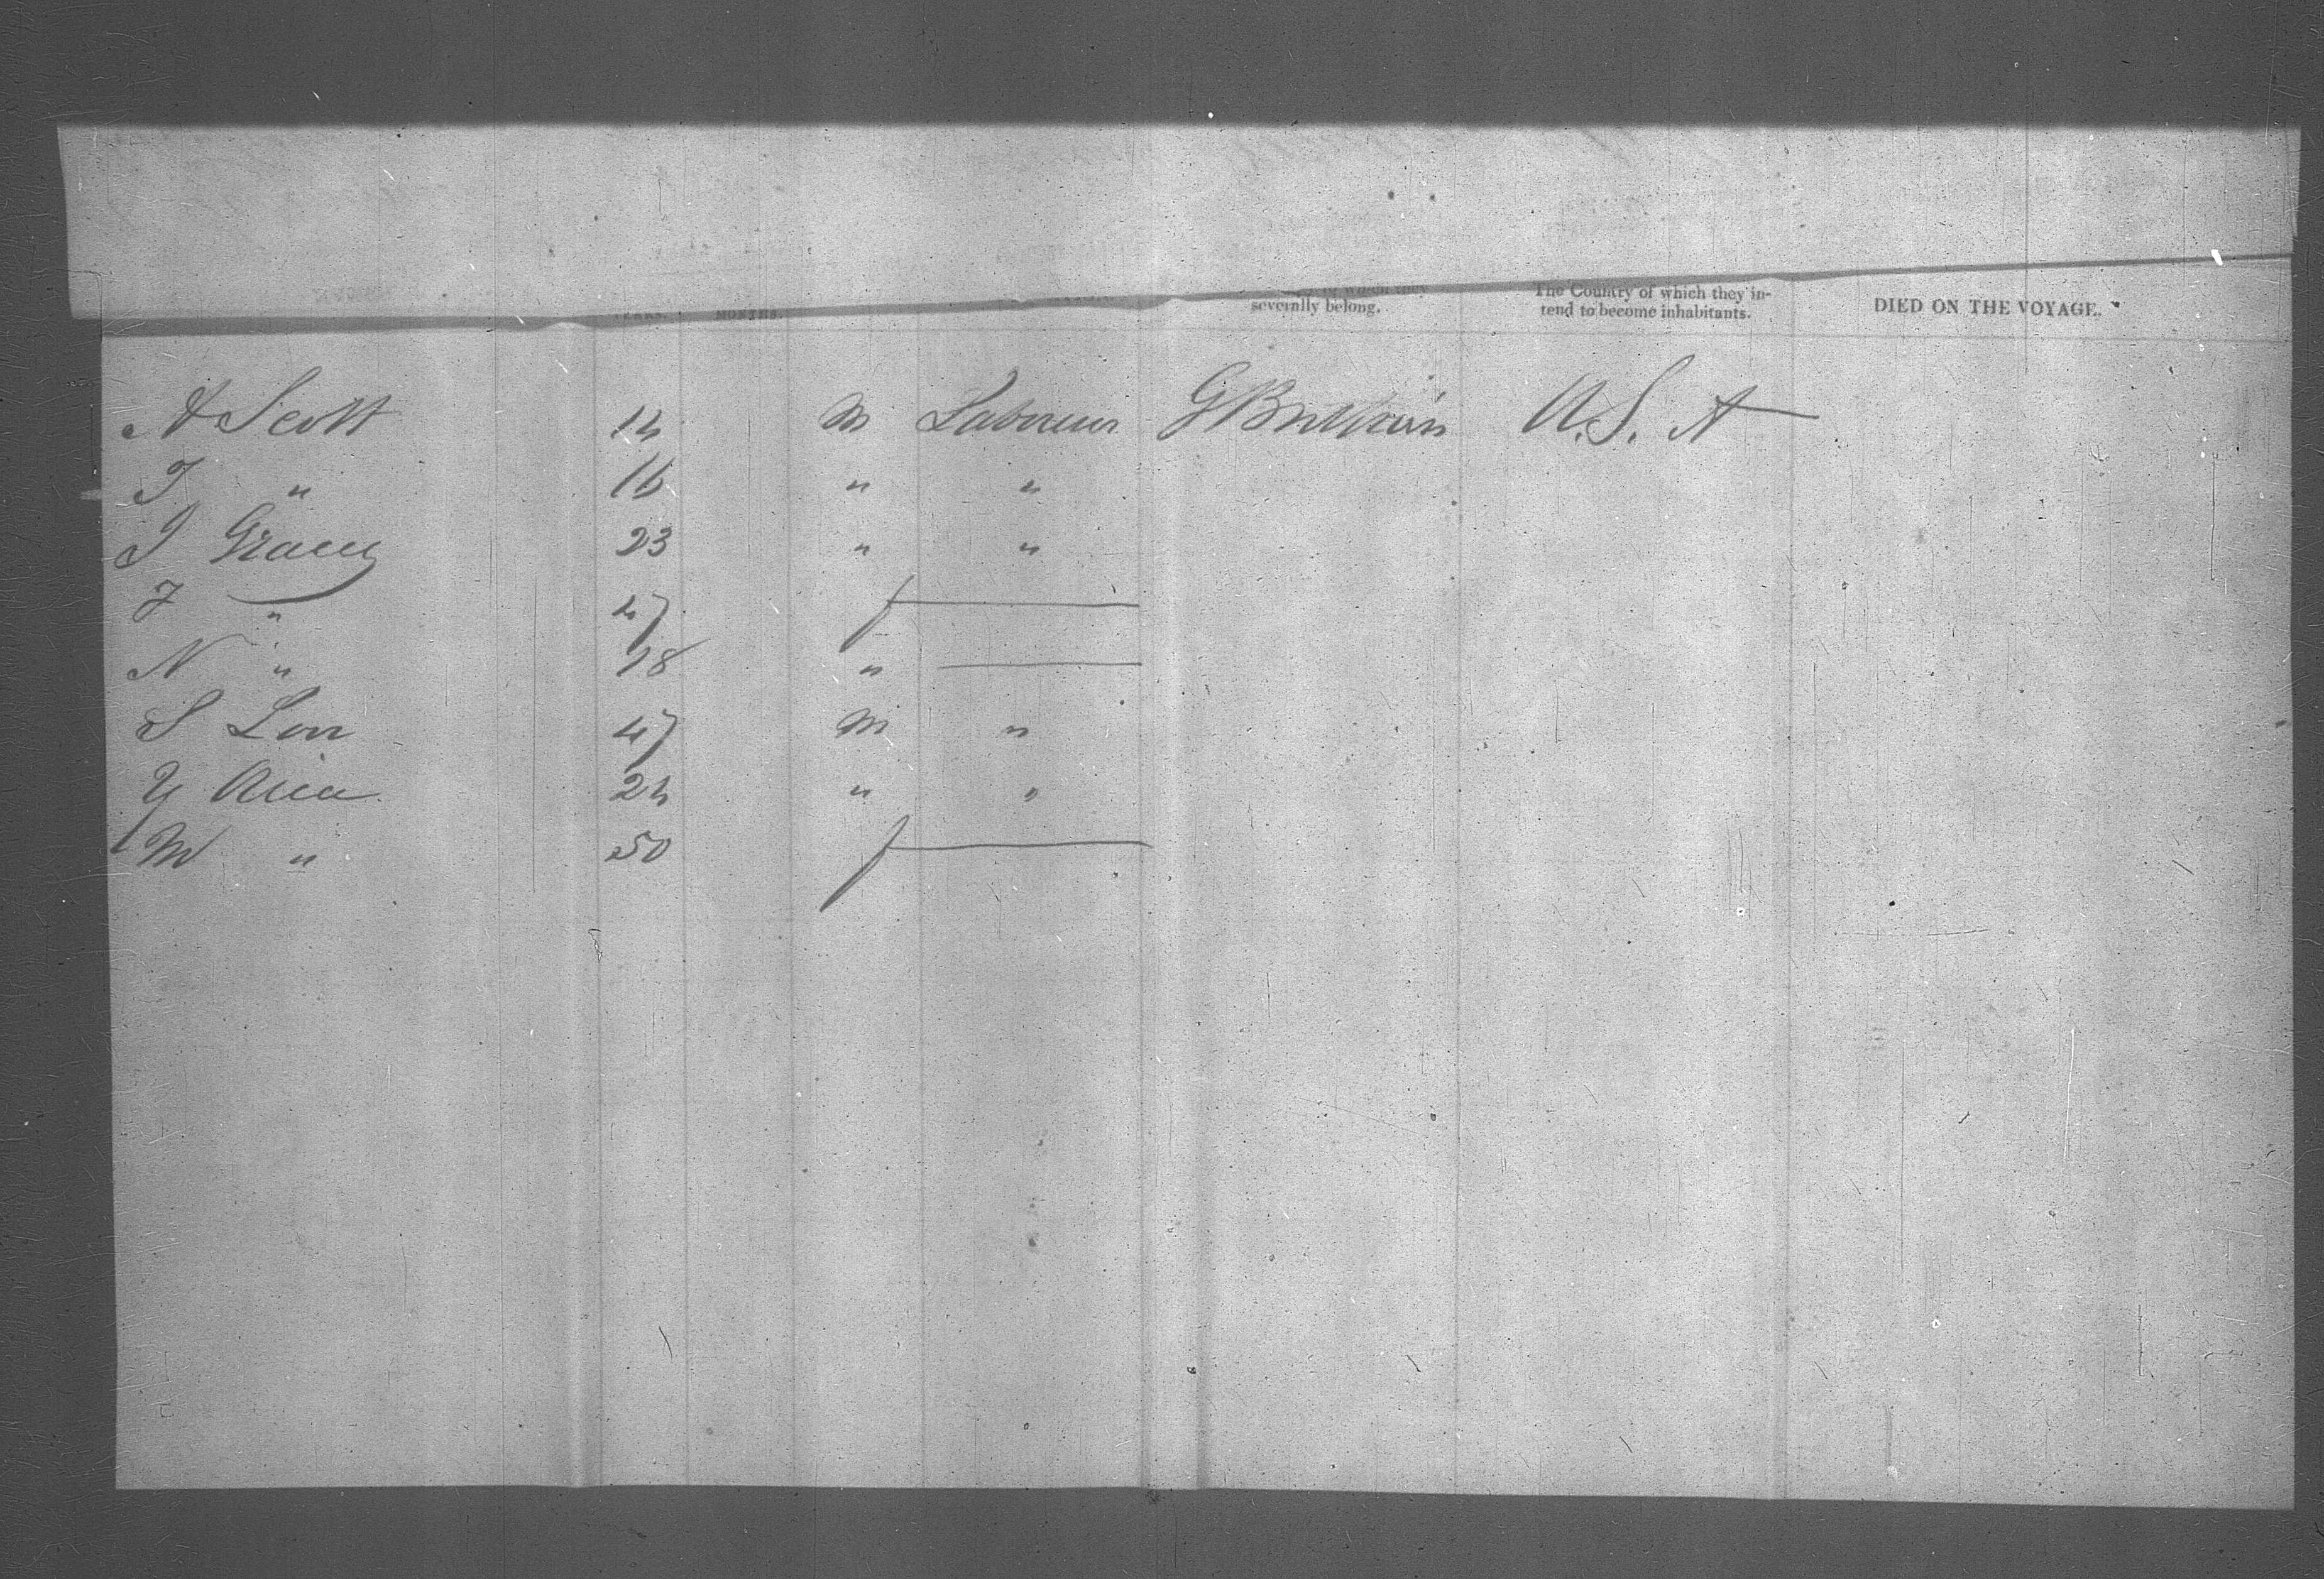 YEARS. MONTHS. to which they severally belong. The Country of which they in-tend to become inhabitants. DIED ON THE VOYAGE.
A Scott 14 M Labourer G Brittain U.S. A
T " 16 " "
J Gracey 23 " "
J " 47 f
N " 18 "
S Lon 47 M "
Y 24 " "
M " 50 f